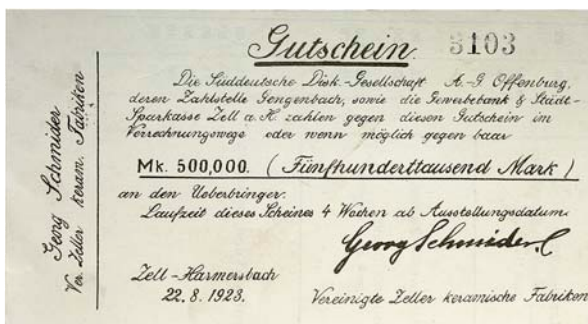 Gutschein. 3103
Georg Schmider
Ver. Zeller keram. Fabriken
Die Süddeutsche Disk.-Gesellschaft A.-G. Offenburg,
deren Zahlstelle Gengenbach, sowie die Gewerbebank & Städt-
Sparkasse Zell a. H. zahlen gegen diesen Gutschein im
Verrechnungswege oder wenn möglich gegen baar
Mk. 500,000. (Fünfhunderttausend Mark)
an den Ueberbringer.
Laufzeit dieses Scheines 4 Wochen ab Ausstellungsdatum.
Georg Schmider
Zell-Harmersbach
22.8.1923. Vereinigte Zeller keramische Fabriken